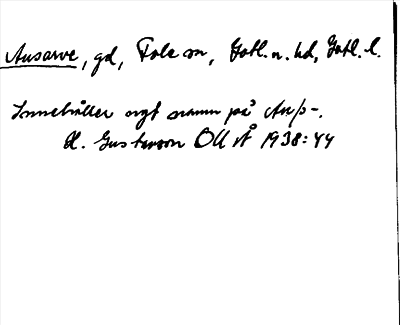 Ausarve, gd, Fole sn, Gotl. n. hd, Gotl. l.
Innehåller ngt namn på Au/s-.
H. Gustavson OUÅ 1938:44